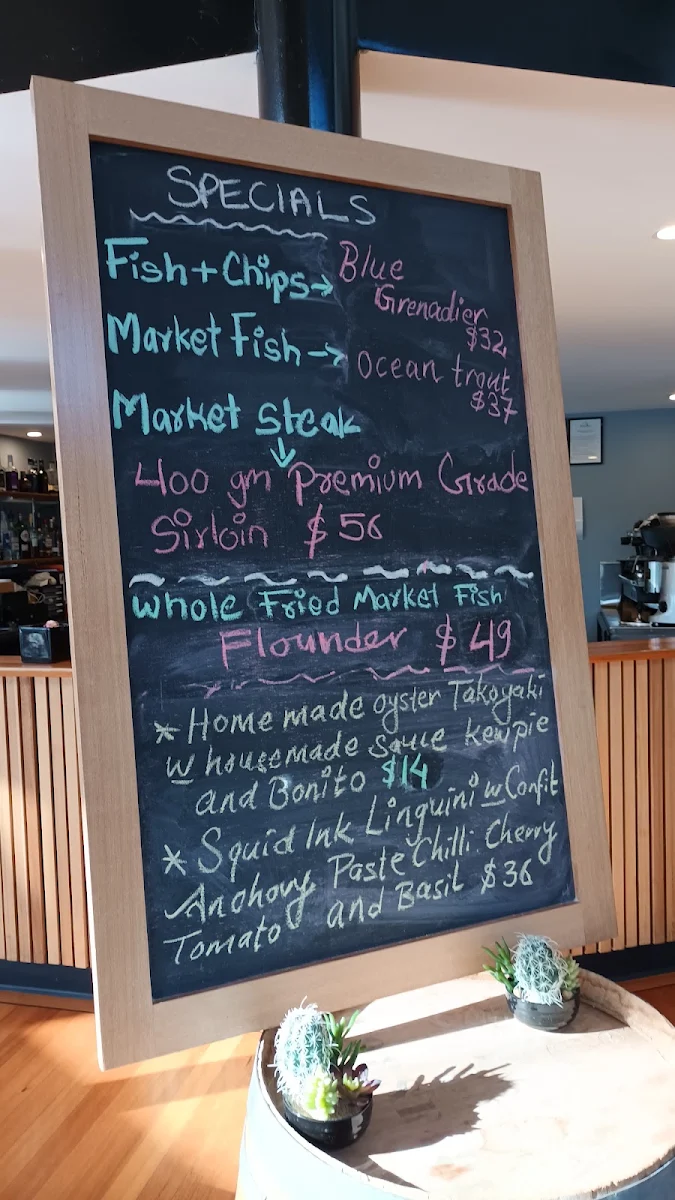 SPECIALS
Fish + Chips → Blue
Grenadier
$32
Market Fish → Ocean trout
$37
Market steak
↓
400 gm Premium Grade
Sirloin $56
Whole Fried Market Fish
Flounder $49
* Home made oyster Takoyaki
w housemade sauce kewpie
and Bonito $14
* Squid Ink Linguini w Confit
Anchovy Paste Chilli Cherry
Tomato and Basil $36